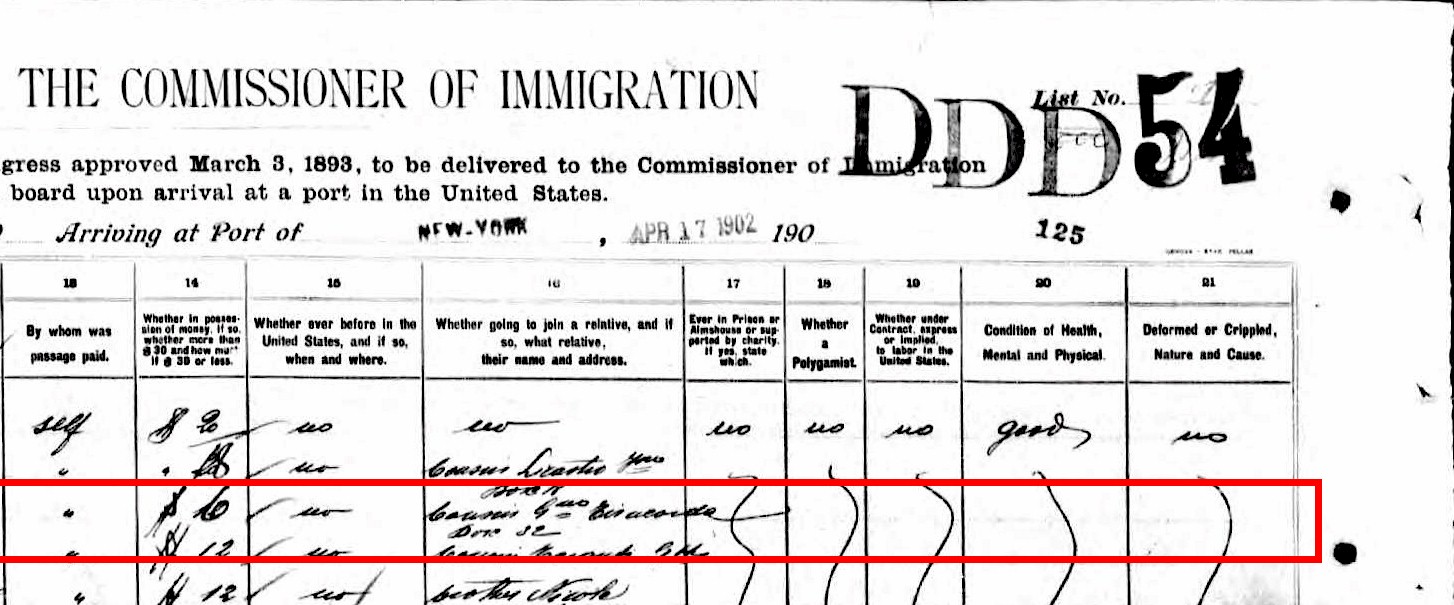 THE COMMISSIONER OF IMMIGRATION
DDD
List No. 54
gress approved March 3, 1893, to be delivered to the Commissioner of Immigration
board upon arrival at a port in the United States.
Arriving at Port of NEW-YORK, APR 17 1902 190
125
13 14 15 16 17 18 19 20 21
By whom was passage paid.
Whether in possession of money, if so, whether more than $30 and how much if $30 or less.
Whether ever before in the United States, and if so, when and where.
Whether going to join a relative, and if so, what relative, their name and address.
Ever in Prison or Almshouse or supported by charity. If yes, state which.
Whether a Polygamist.
Whether under Contract, express or implied, to labor in the United States.
Condition of Health, Mental and Physical.
Deformed or Crippled, Nature and Cause.
self $ 20 no no no no no good no
" " no Cousin
Box
" $ no Cousin
Box 32
" $ 12 no Cousin
" $ 12 no brother Nicola